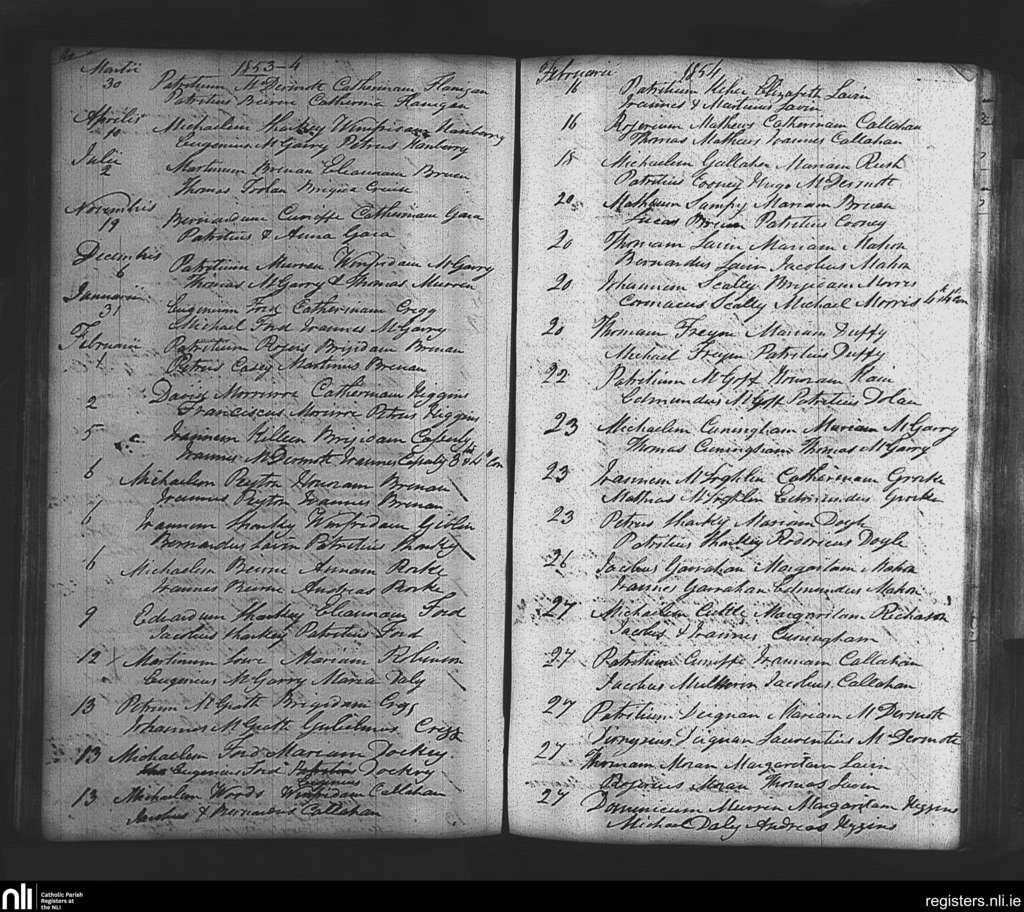 1853-4
Martii
30 Patritium McDermott Catherinam Flanigan
Patritius Beirne Catherina Flanigan
Aprilis
10 Michaelem Sharkey Winifridam Hanberry
Eugenius McGarry Petrus Hanberry
Julii
2 Martinum Brenan Eleanoram Bruen
Thomas Dolan Brigida Cruise
Novembris
19 Bernardum Cunife Catherinam Gara
Patritius & Anna Gara
Decembris
6 Patritium Murren Winfridam McGarry
Thomas McGarry & Thomas Murren
Januarii
31 Eugenium Ford Catherinam Cregg
Michael Ford Joannes McGarry
Februarii
1 Patritium Rogers Brigidam Brenan
Petrus Casey Martinus Brenan
2 David Morrisroe Catherinam Higgins
Franciscus Petrus Higgins
5 Joannem Killeen Brigidam
Joannes McDermott Joannes 3d & 4th Con
6 Michaelem Peyton Honoram Brenan
Joannes Peyton Joannes Brenan
6 Joannem Sharkey Winfridam Giblin
Bernardus Lavin Patritius Sharkey
6 Michaelem Beirne Annam Rorke
Joannes Beirne Andreas Rorke
9 Edvardum Sharkey Eleanoram Ford
Jacobus Sharkey Patritius Ford
12 Martinum Lowe Mariam Robinson
Eugenius McGarry Maria Daly
13 Petrum McGrath Brigidam Cregg
Johannes McGrath Gulielmus Cregg
13 Michaelem Ford Mariam Dockry
Eugenius Ford Dockry
13 Michaelem Woods Winfridam Callahan
Jacobus & Bernardus Callahan
Februarii 1854
16 Patritium Keher Elizabeth Lavin
Joannes & Martinus Lavin
16 Rogerium Mathews Catherinam Callahan
Thomas Mathews Joannes Callahan
18 Michaelem Gallahan Mariam Rush
Patritius Cooney Hugo McDermott
20 Mathaeum Sampy Mariam Bruen
Lucas Bruen Patritius Cooney
20 Thomam Lavin Mariam Mahon
Bernardus Lavin Jacobus Mahon
20 Johannem Scally Brigidam Morris
Cormacus Scally Michael Morris 4th & 4th Con
20 Thomam Freyne Mariam Duffy
Michael Freyne Patritius Duffy
22 Patritium McGoff Honoram Hain
Edmundus McGoff Patritius Dolan
23 Michaelem Cuningham Mariam McGarry
Thomas Cuningham Thomas McGarry
23 Joannem McLoghlin Catherinam Grorke
Mathias McLoghlin Edmundus Grorke
23 Petrus Sharkey Mariam Doyle
Patritius Sharkey Rodericus Doyle
26 Jacobus Garrahan Margaritam Mahon
Joannes Garrahan Edmundus Mahon
27 Michaelem Margaritam
Jacobus & Joannes Cuningham
27 Patritium Cuniffe Joannam Callahan
Jacobus Mulheirn Jacobus Callahan
27 Patritium Duignan Mariam McDermott
Dionysius Duignan Laurentius McDermott
27 Thomam Moran Margaretam Lavin
Rogerius Moran Thomas Lavin
27 Dominicum Murren Margaretam Higgins
Michael Daly Andreas Higgins
nli
Catholic Parish
Registers at
the NLI
registers.nli.ie